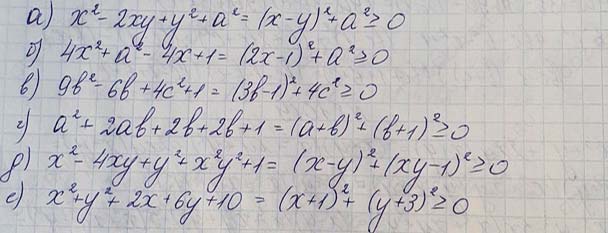 а) x² - 2xy + y² + a² = (x-y)² + a² ≥ 0
б) 4x² + a² - 4x + 1 = (2x-1)² + a² ≥ 0
в) 9b² - 6b + 4c² + 1 = (3b-1)² + 4c² ≥ 0
г) a² + 2ab + 2b + 2b + 1 = (a+b)² + (b+1)² ≥ 0
д) x² - 4xy + y² + x²y² + 1 = (x-y)² + (xy-1)² ≥ 0
е) x² + y² + 2x + 6y + 10 = (x+1)² + (y+3)² ≥ 0